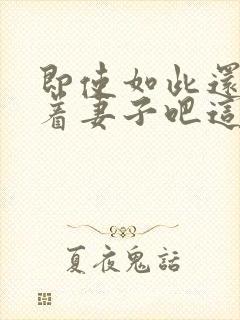 即使如此還
着妻子吧這
夏夜鬼話